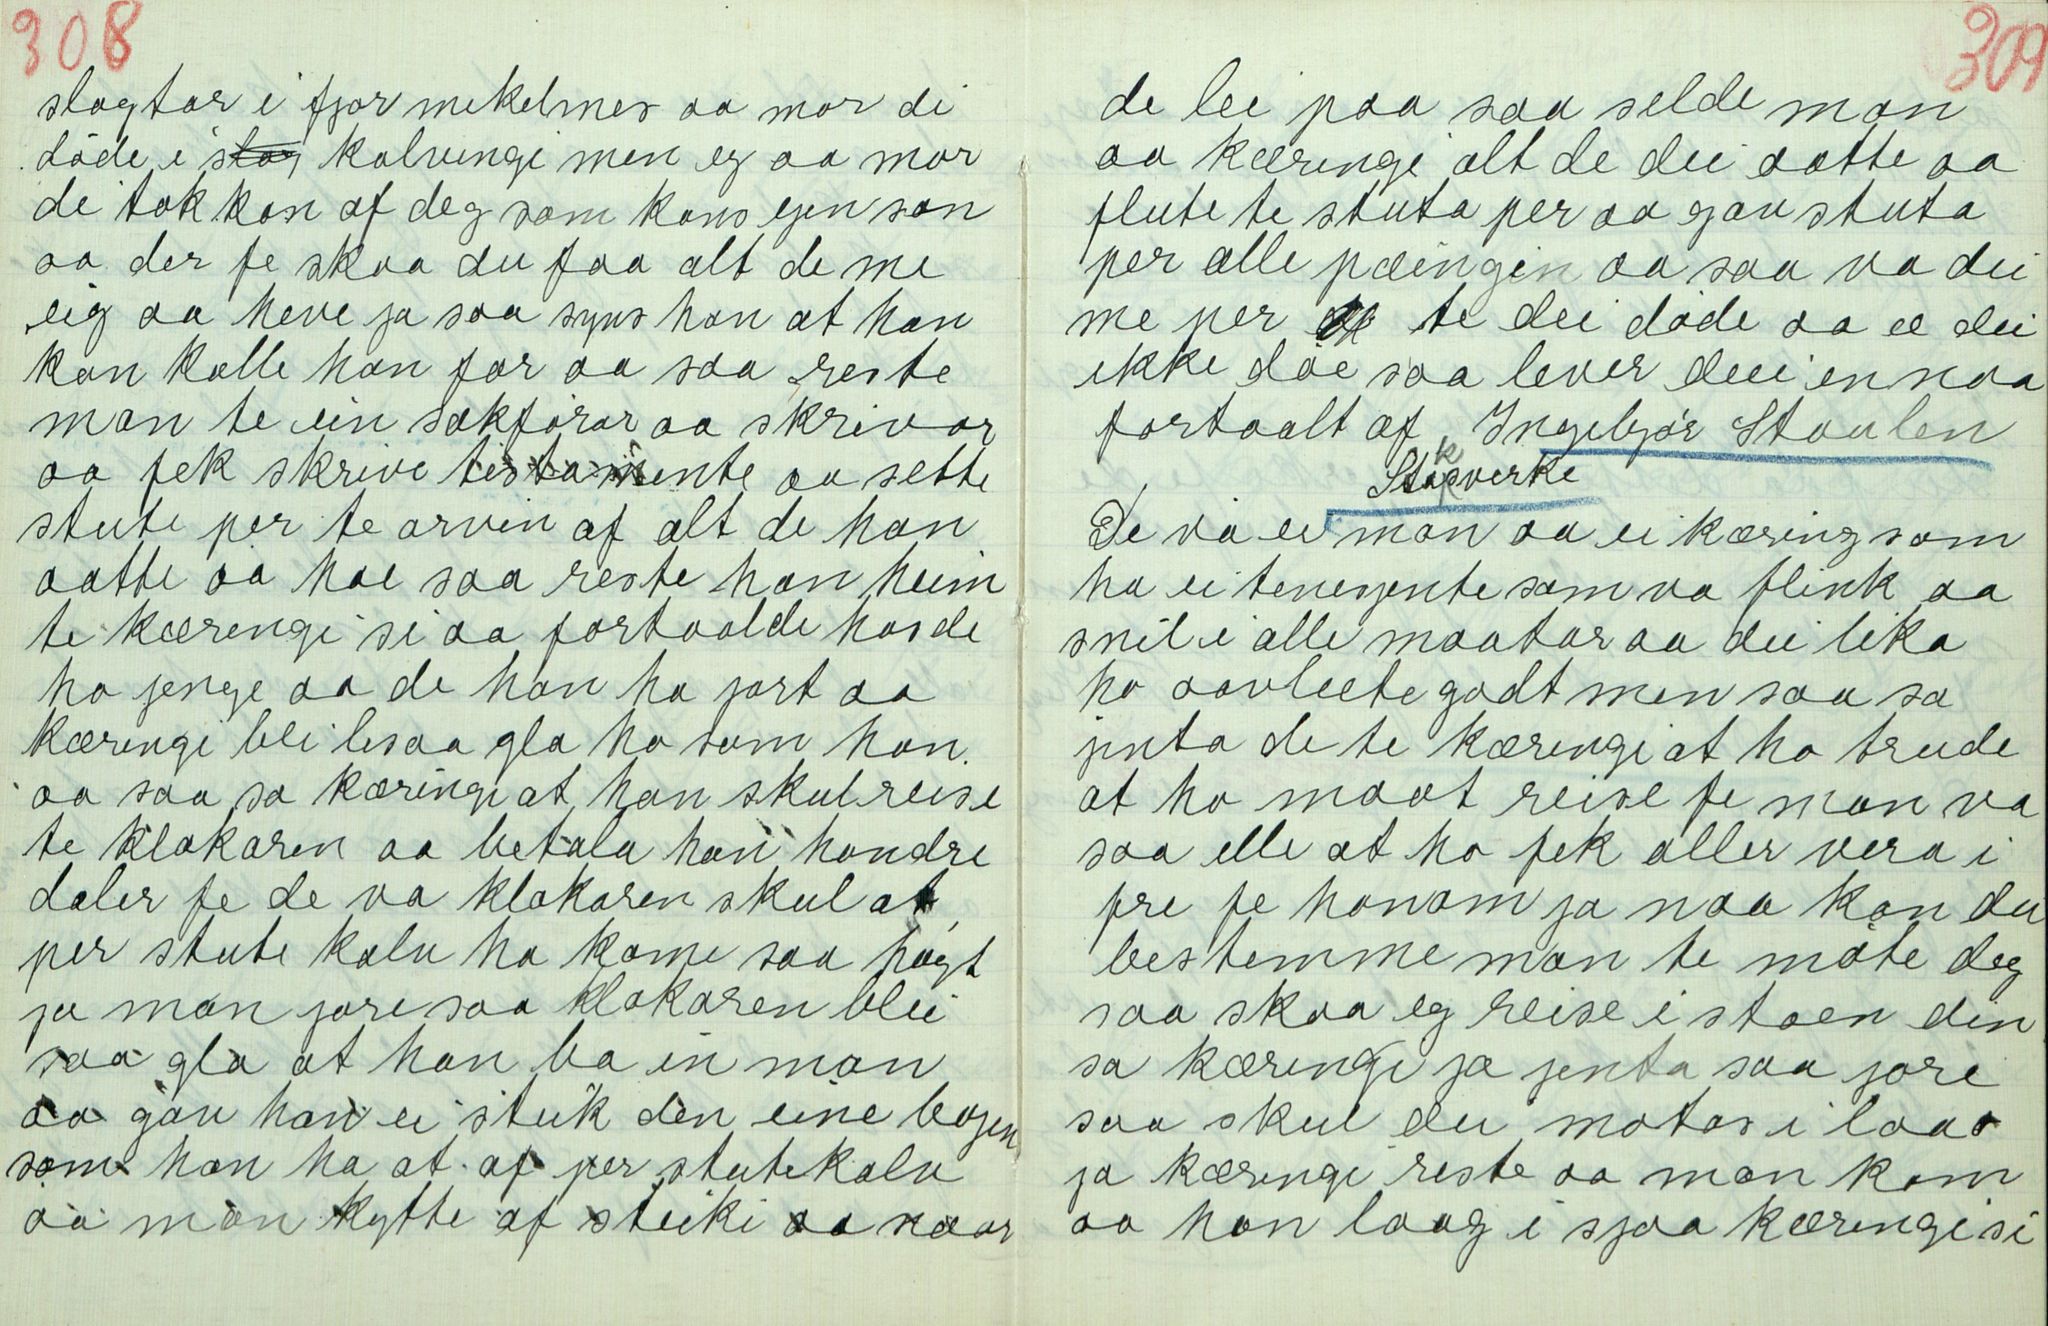 308
slagtar i fjor mekelmes aa mor di
döde i slag kalvingi men eg aa mor
di tok kon af deg som kons ejen son
aa der fe skaa du faa alt de me
eig aa heve ja saa syns han at han
kan kalle han far aa saa reste
man te ein sakförar aa skrivar
aa fek skrive testamente aa sette
stute per te arvin af alt de han
aatte aa hae saa reste han heim
te kæringi si aa fortaalde hosde
ha jenge aa de han ha jort aa
kæringi blei lesaa gla ho som han.
aa saa sa kæringi at han skul reise
te klokaren aa betala han hondre
daler fe de va klokaren skul at
per stute kalv ha kome saa högt
ja man jore saa klokaren blei
saa gla at han ba in man
aa gav han ei steik den eine bogen
som han ha at af per stutekalv
aa man kytte af steiki aa naar
309
de lei paa saa selde man
aa kæringi alt de dei aatte aa
flute te stuta per aa gav stuta
per alle pæingin aa saa va dei
me per te dei döde aa ee dei
ikke döe saa lever deei ennaa
fortaalt af Ingebjör Staulen
Stakverke
De va ei man aa ei kæring som
ha ei tenejente som va flink aa
snil i alle maatar aa dei lika
ho aavleete godt men saa sa
jnta de te kæringi at ho trude
at ho maat reise fe man va
saa elle at ho fek aller vera i
fre fe honom ja naa kan du
bestemme man te möte deg
saa skaa eg reise i staen din
sa kæringi ja jenta saa jore
saa skul du motas i laas
ja kæringi reste aa man kom
aa han laag i sjaa kæringi si